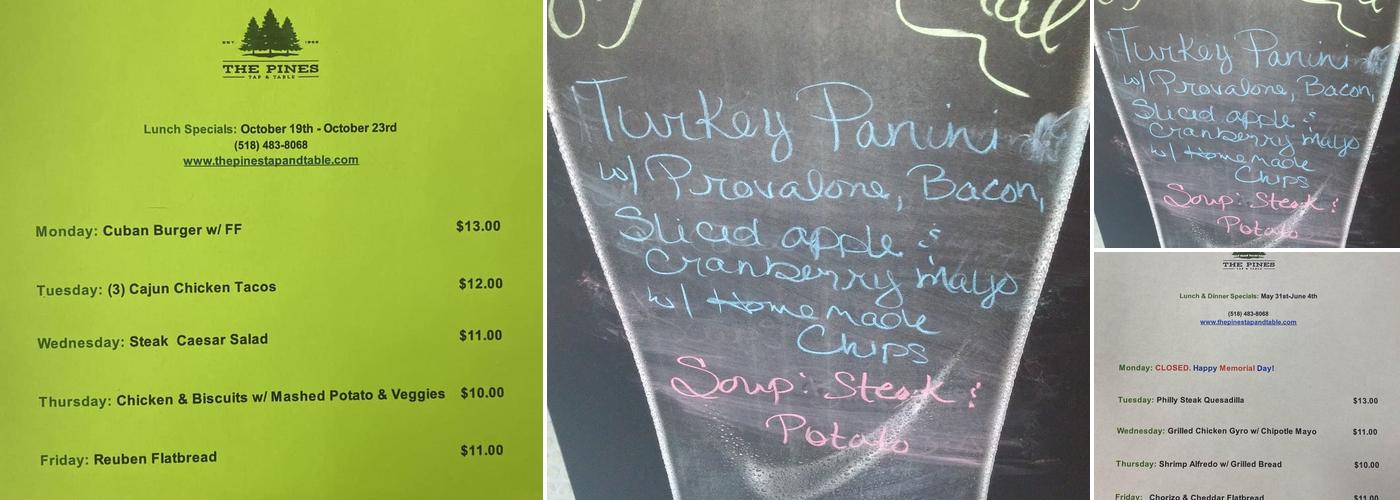 EST. 1969
THE PINES
TAP & TABLE
Lunch Specials: October 19th - October 23rd
(518) 483-8068
www.thepinestapandtable.com
Monday: Cuban Burger w/ FF $13.00
Tuesday: (3) Cajun Chicken Tacos $12.00
Wednesday: Steak Caesar Salad $11.00
Thursday: Chicken & Biscuits w/ Mashed Potato & Veggies $10.00
Friday: Reuben Flatbread $11.00
Turkey Panini
w/ Provalone, Bacon,
Sliced apple &
Cranberry mayo
w/ Homemade
Chips
Soup: Steak &
Potato
Turkey Panini
w/ Provalone, Bacon,
Sliced apple &
Cranberry mayo
w/ Homemade
Chips
Soup: Steak &
Potato
THE PINES
TAP & TABLE
Lunch & Dinner Specials: May 31st-June 4th
(518) 483-8068
www.thepinestapandtable.com
Monday: CLOSED. Happy Memorial Day!
Tuesday: Philly Steak Quesadilla $13.00
Wednesday: Grilled Chicken Gyro w/ Chipotle Mayo $11.00
Thursday: Shrimp Alfredo w/ Grilled Bread $10.00
Friday: Chorizo & Cheddar Flatbread $11.00